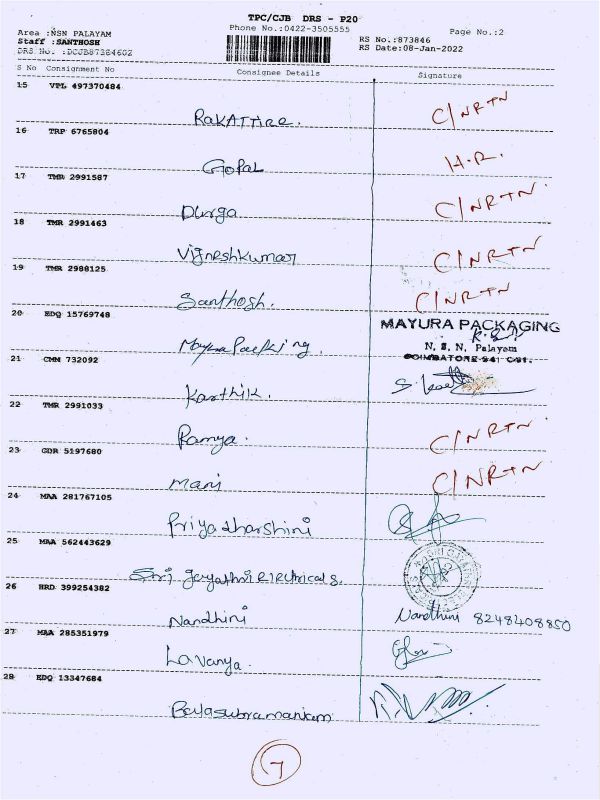 TPC/CJB DRS - P20
Phone No.:0422-3505555
Page No.:2
Area :NSN PALAYAM
Staff :SANTHOSH
DRS No. :DCJB873846G2
RS No.:873846
RS Date:08-Jan-2022
S No Consignment No Consignee Details Signature
15 VPL 497370484
RakATTire. C/NRTN
16 TRP 6765804
Gopal H.R.
17 TMR 2991587
Durga C/NRTN
18 TMR 2991463
Vijneshkumar C/NRTN
19 TMR 2988125
Santhosh. C/NRTN
20 EDQ 15769748
MAYURA PACKAGING
N. S. N. Palayam
Mayura Packing.
COIMBATORE-641
21 CMN 732092
Karthik.
22 TMR 2991033
Ramya. C/NRTN
23 GDR 5197680
Mani C/NRTN
24 MAA 281767105
Priyadharshini
25 MAA 562443629
Shri Gayathri Electricals.
26 HRD 399254382
Nandhini Nandhini 8248408850
27 MAA 285351979
Lavanya.
28 EDQ 13347684
Balasubramaniam
7